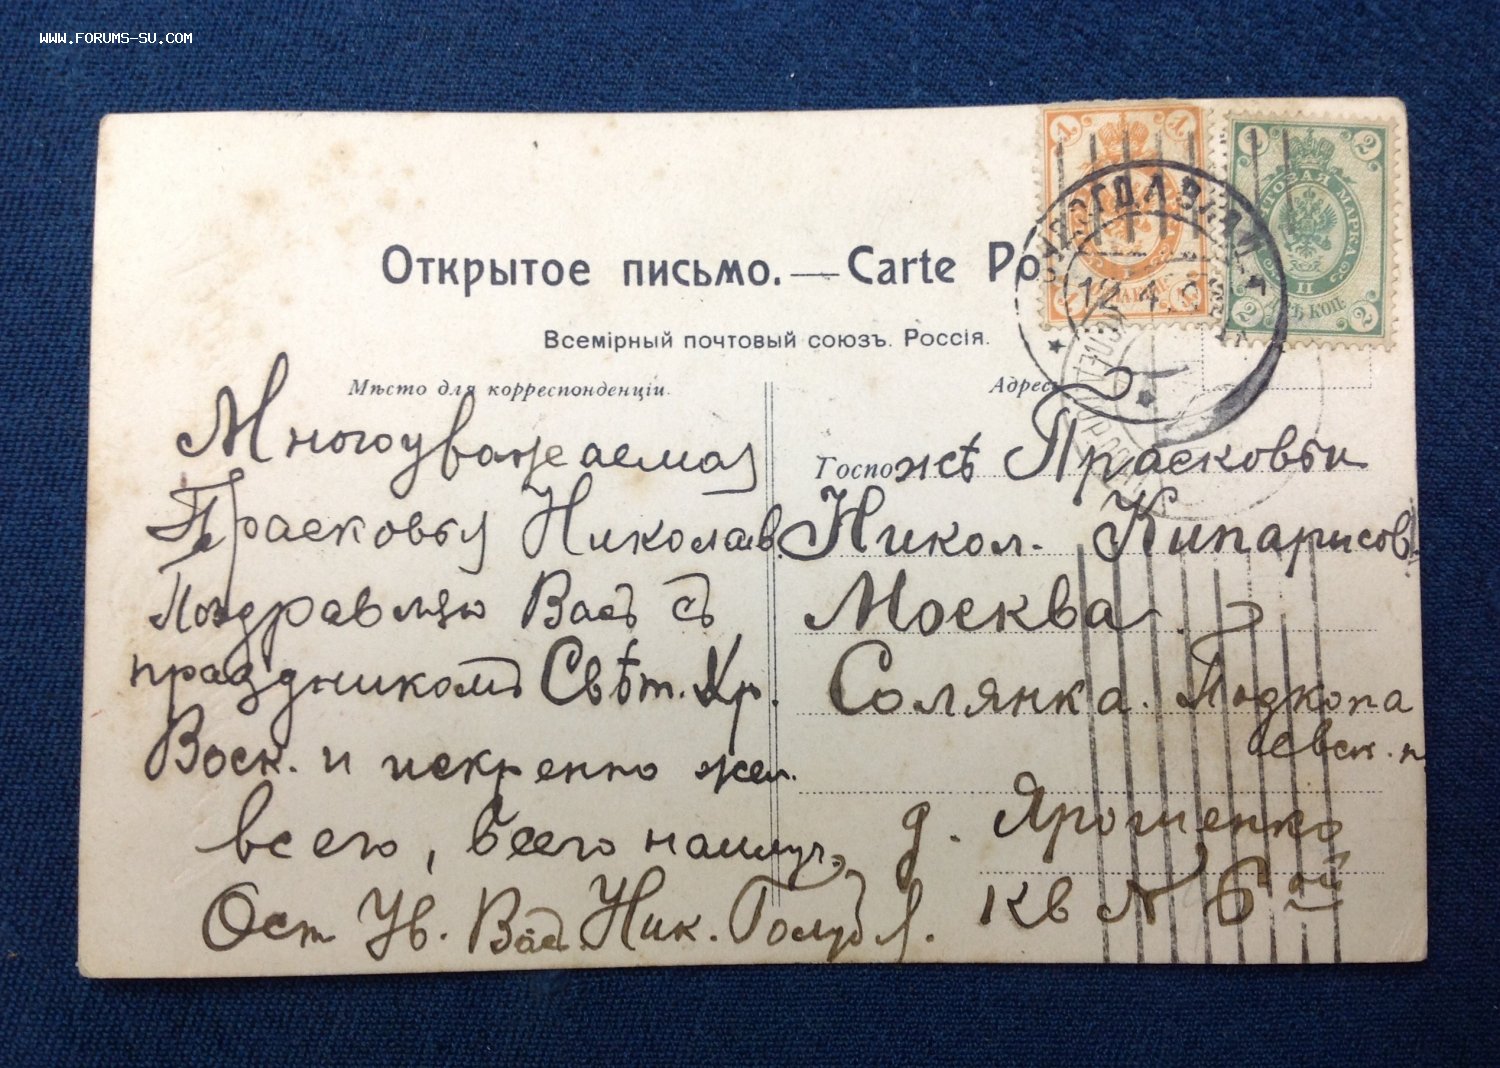 WWW.FORUMS-SU.COM
Открытое письмо. — Carte Po
Всемірный почтовый союзъ. Россія.
Мѣсто для корреспонденціи.
Многоуважаемая
Прасковья Николаев.
Поздравляю Васъ съ
праздникомъ Свѣт. Хр.
Воск. и искренно жел.
всего, всего наилуч.
Ост Ув. Васъ Ник. Голуб
Адресъ
Госпожѣ Прасковьи
Никол. Кипарисов.
Москва.
Солянка. Подкопа
евск. п.
д. Ярошенко
кв № 6ой
1 1
1 1
2 2
ПОЧТОВАЯ МАРКА
ДВѢ КОП.
2 2
12 4